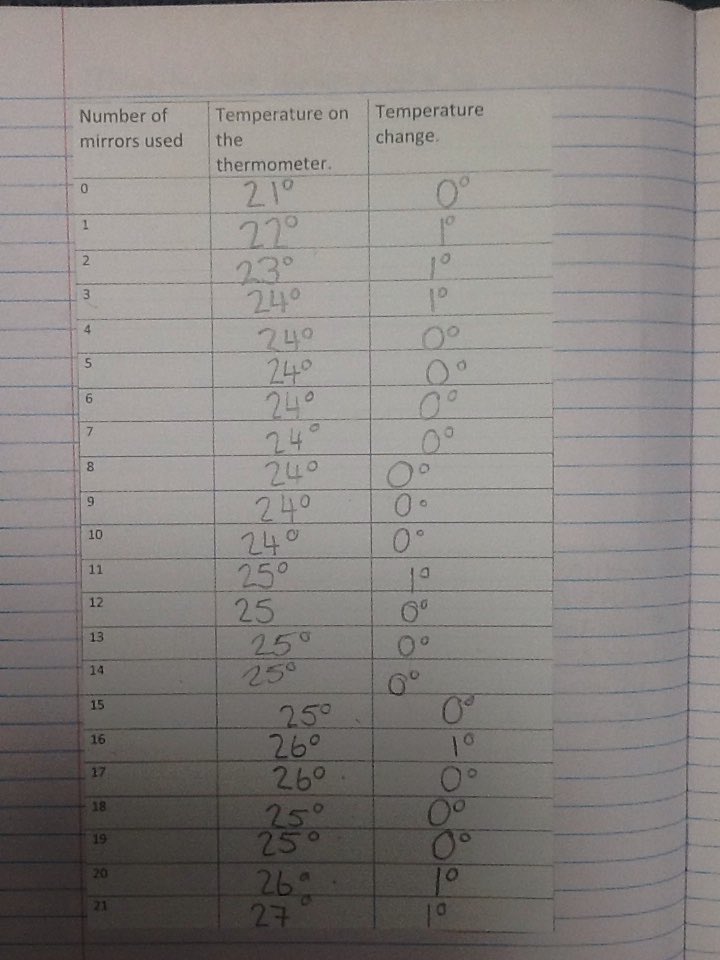 Number of mirrors used Temperature on the thermometer. Temperature change.
0 21° 0°
1 22° 1°
2 23° 1°
3 24° 1°
4 24° 0°
5 24° 0°
6 24° 0°
7 24° 0°
8 24° 0°
9 24° 0°
10 24° 0°
11 25° 1°
12 25 0°
13 25° 0°
14 25° 0°
15 25° 0°
16 26° 1°
17 26° 0°
18 25° 0°
19 25° 0°
20 26° 1°
21 27° 1°